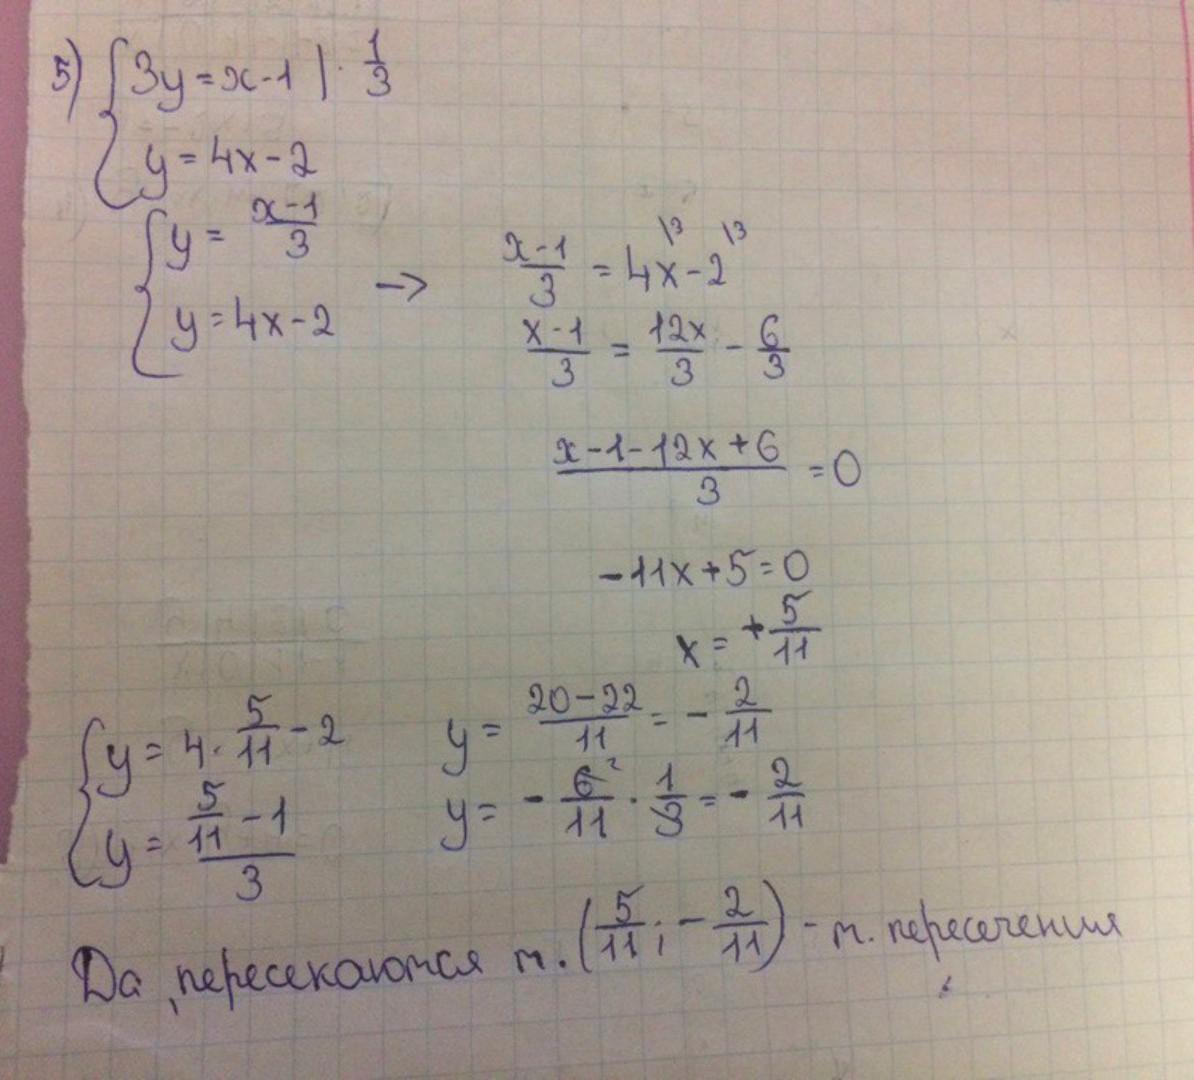 5) { 3y = x - 1 | · 1/3
y = 4x - 2
{ y = (x-1)/3
y = 4x - 2
→
(x-1)/3 = 4x\3 - 2\3
(x-1)/3 = 12x/3 - 6/3
(x-1-12x+6)/3 = 0
-11x + 5 = 0
x = +5/11
{ y = 4 · 5/11 - 2
y = (5/11 - 1)/3
y = (20-22)/11 = - 2/11
y = - 6²/11 · 1/3 = - 2/11
Да, пересекаются т. (5/11; - 2/11) - т. пересечения